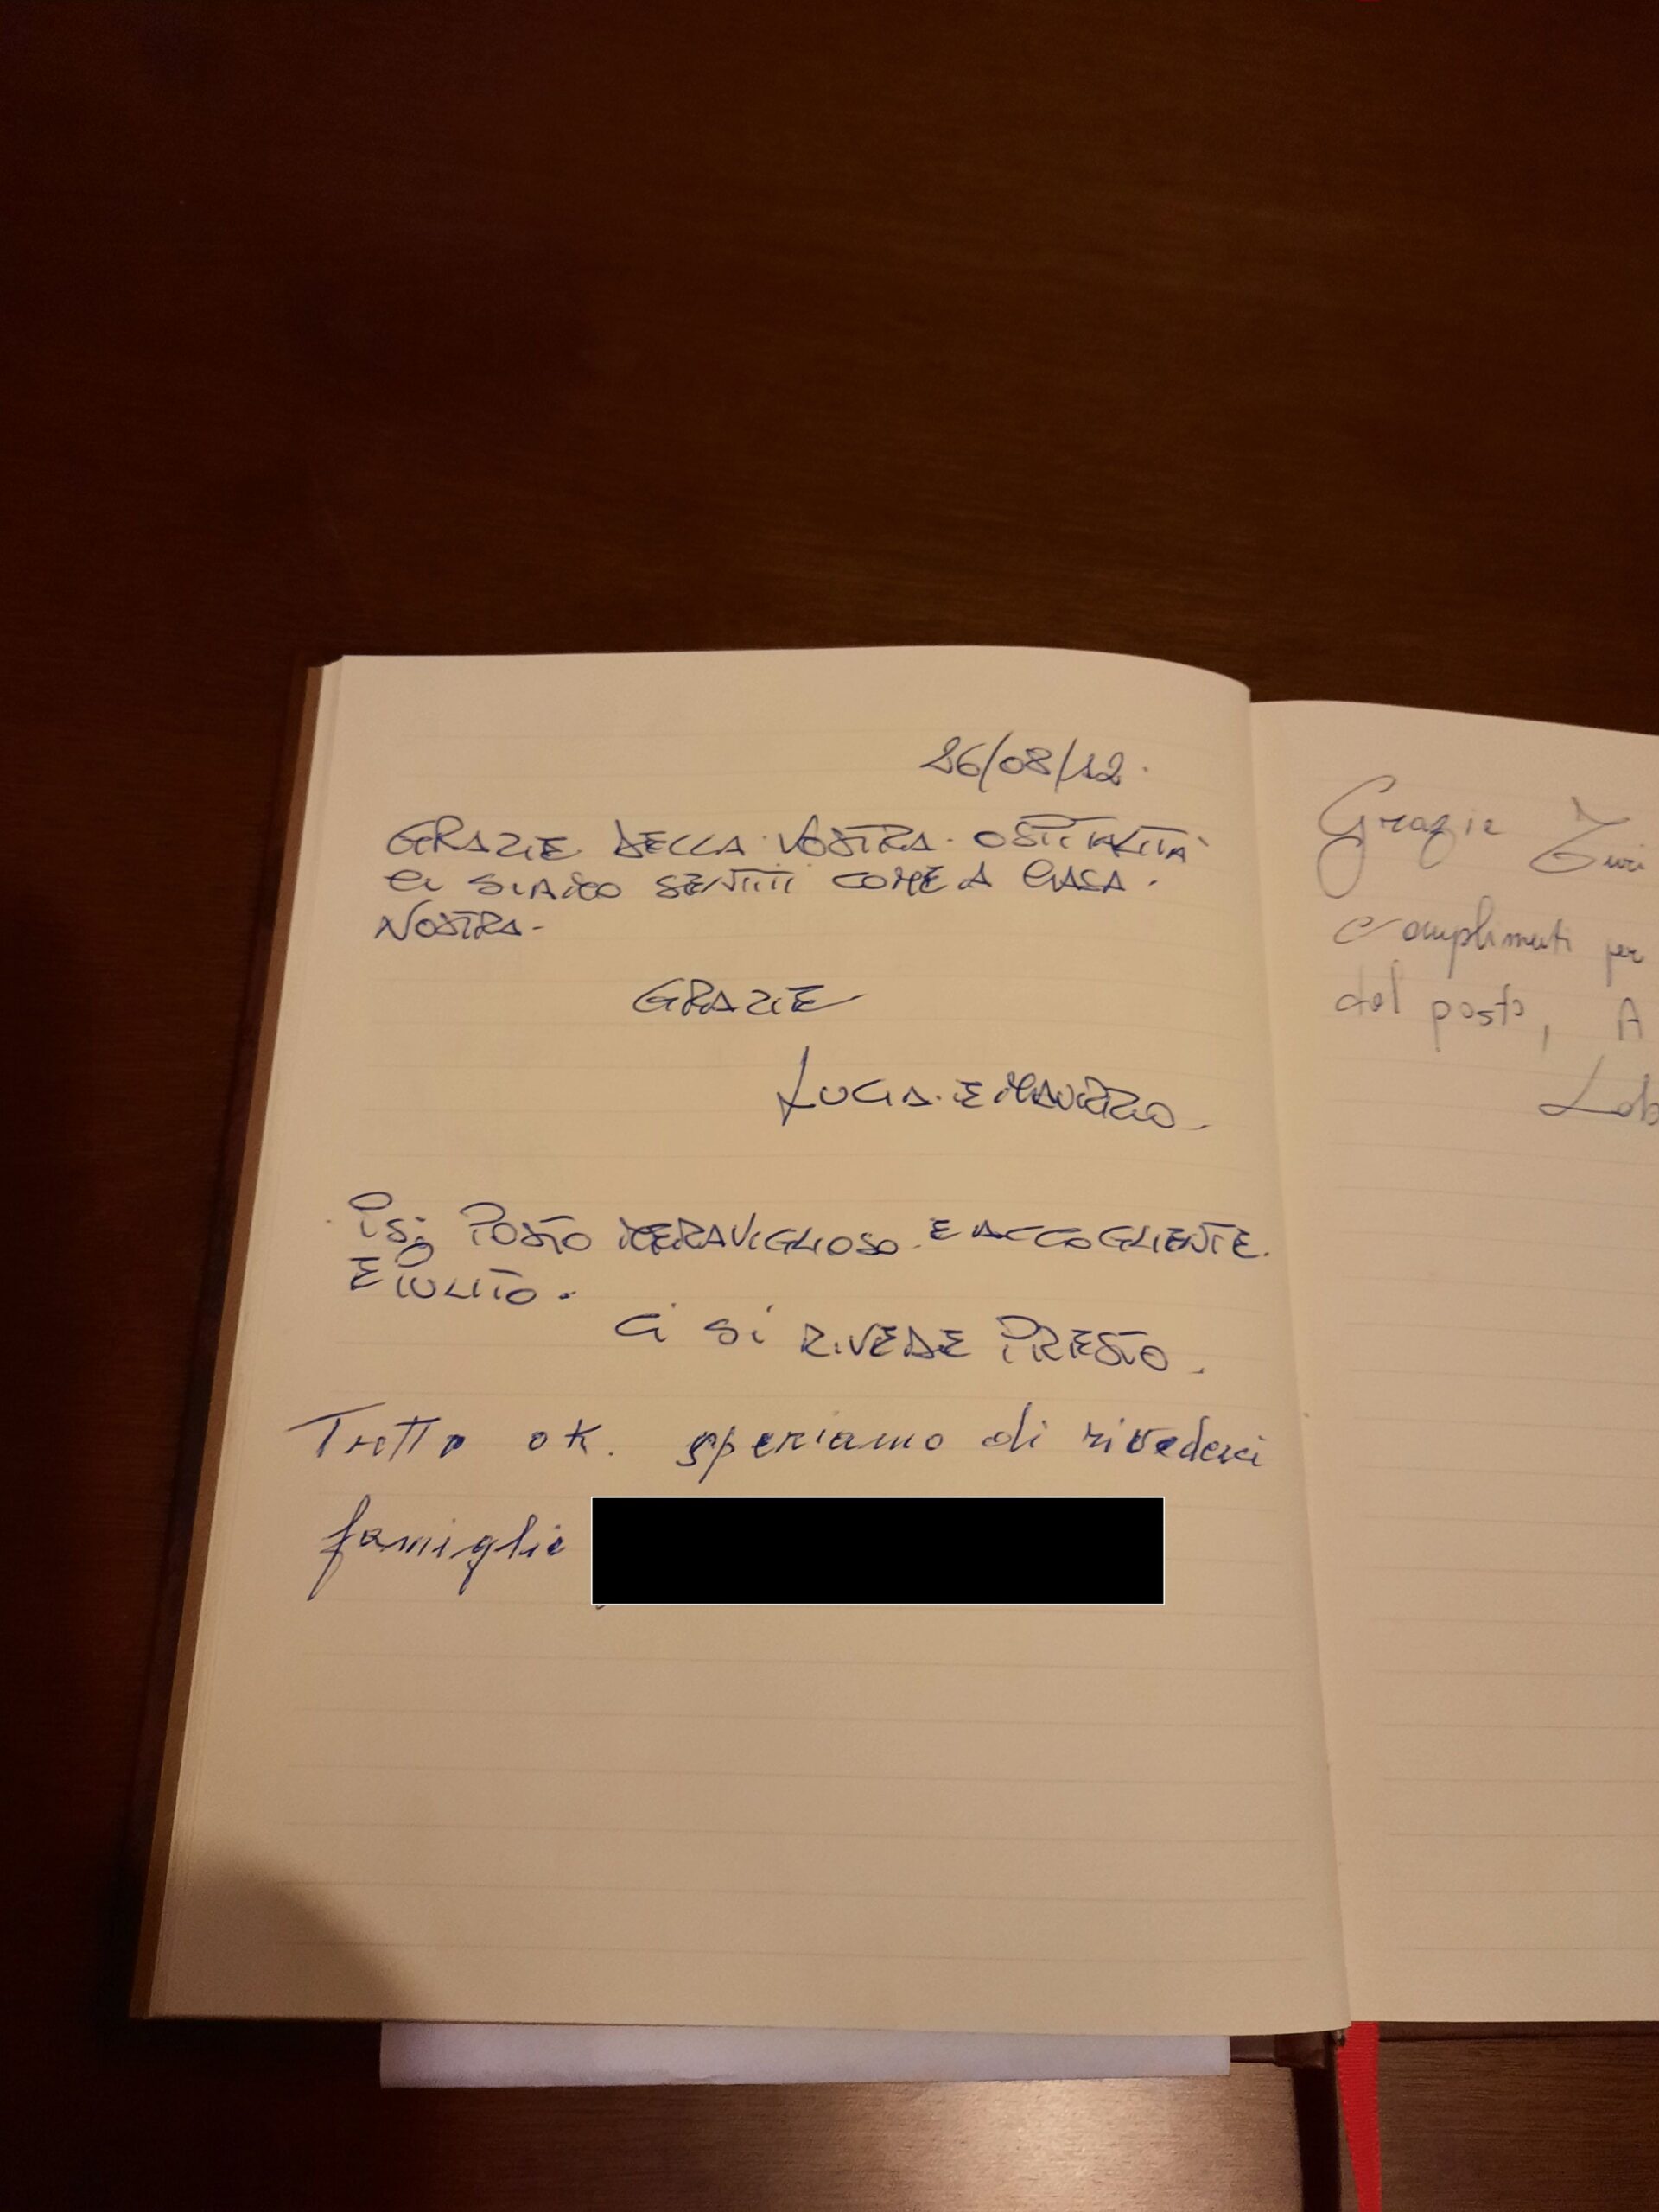 26/08/12.
GRAZIE DELLA VOSTRA OSPITALITÀ
CI SIAMO SENTITI COME A CASA.
NOSTRA.
GRAZIE
LUCIA E MAURIZIO.
PS: POSTO MERAVIGLIOSO E ACCOGLIENTE.
E PULITO.
CI SI RIVEDE PRESTO.
Tutto ok. speriamo di rivederci
famiglia
Grazie
complimenti per
del posto, A